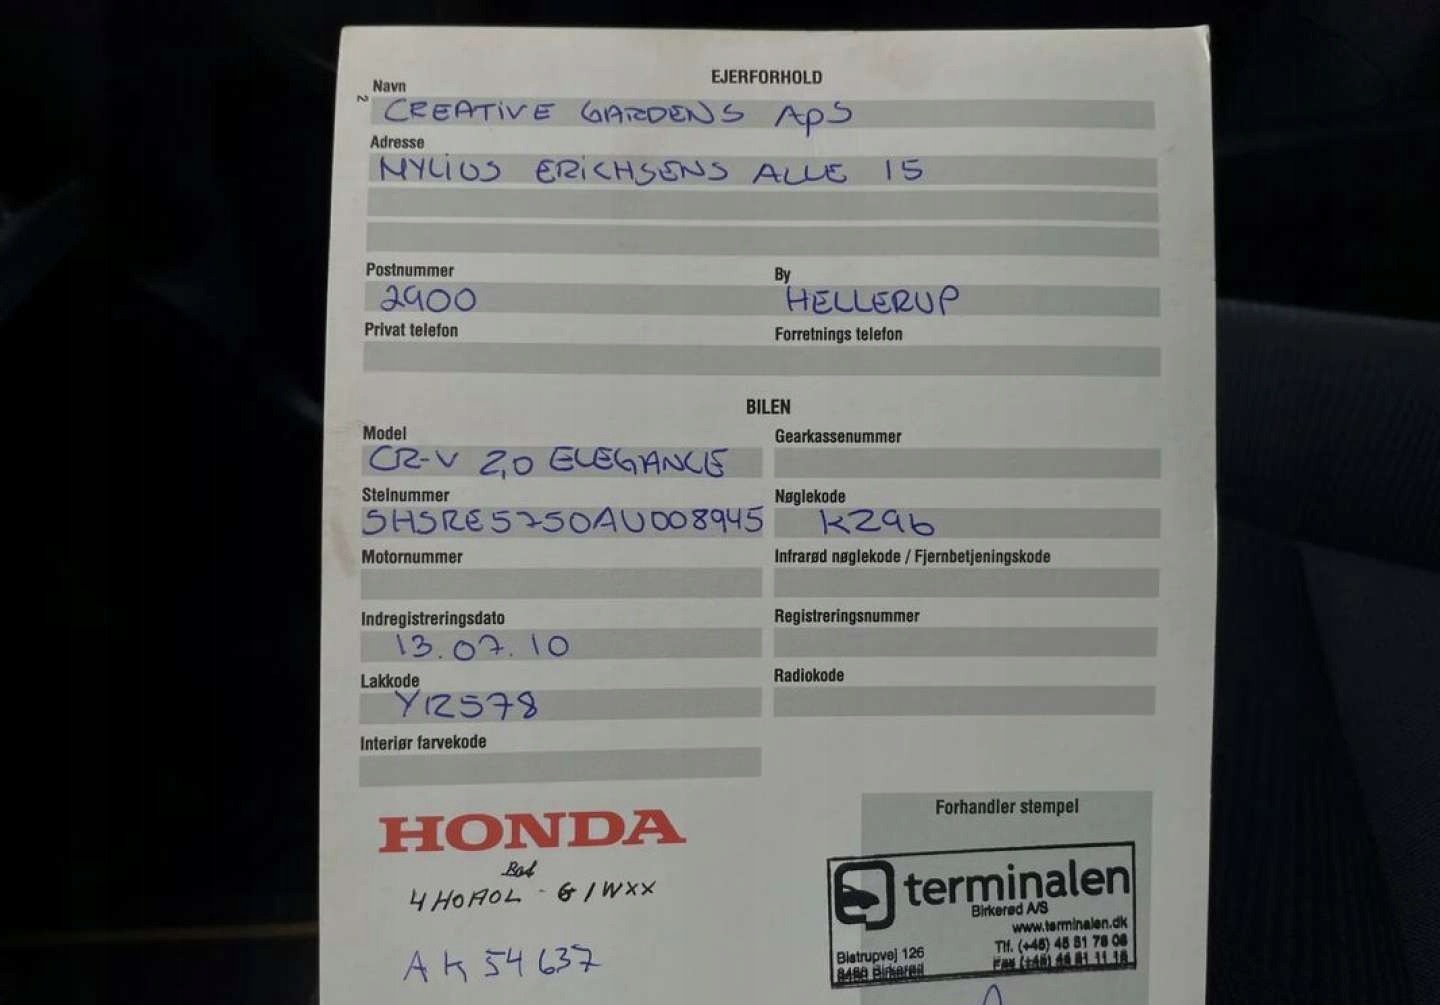 EJERFORHOLD
Navn
2
CREATIVE GARDENS ApS
Adresse
MYLIUS ERICHSENS ALLE 15
Postnummer
By
2900
HELLERUP
Privat telefon
Forretnings telefon
BILEN
Model
Gearkassenummer
CR-V 2,0 ELEGANCE
Stelnummer
Nøglekode
SHSRE5750AU008945
K296
Motornummer
Infrarød nøglekode / Fjernbetjeningskode
Indregistreringsdato
Registreringsnummer
13.07.10
Lakkode
Radiokode
YR578
Interiør farvekode
Forhandler stempel
HONDA
4HOAOL - G1WXX
AK 54 637
terminalen
Birkerød A/S
www.terminalen.dk
Bistrupvej 126
Tlf. (+45) 45 81 78 08
Birkerød
Fax (+45) 45 81 11 18